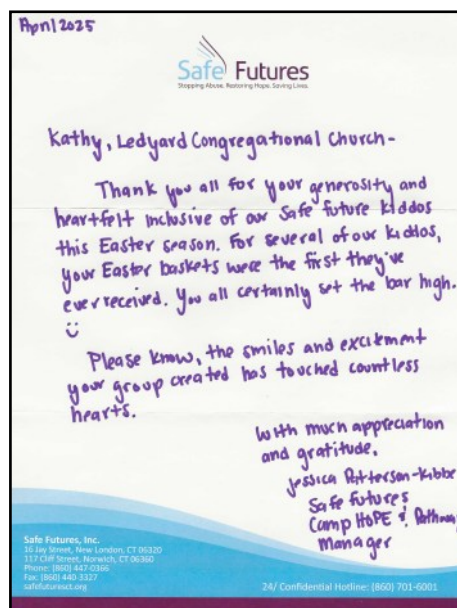 April 2025
Safe Futures
Stopping Abuse. Restoring Hope. Saving Lives.
Kathy, Ledyard Congregational Church-
Thank you all for your generosity and
heartfelt inclusive of our Safe future kiddos
this Easter season. For several of our kiddos,
your Easter baskets were the first they've
ever received. You all certainly set the bar high.
Please know, the smiles and excitement
your group created has touched countless
hearts.
With much appreciation
and gratitude,
Jessica Patterson-Kibbe
Safe Futures
Camp HOPE & Pathways
Manager
Safe Futures, Inc.
16 Jay Street, New London, CT 06320
117 Cliff Street, Norwich, CT 06360
Phone: (860) 447-0366
Fax: (860) 440-3327
safefuturesct.org
24/ Confidential Hotline: (860) 701-6001